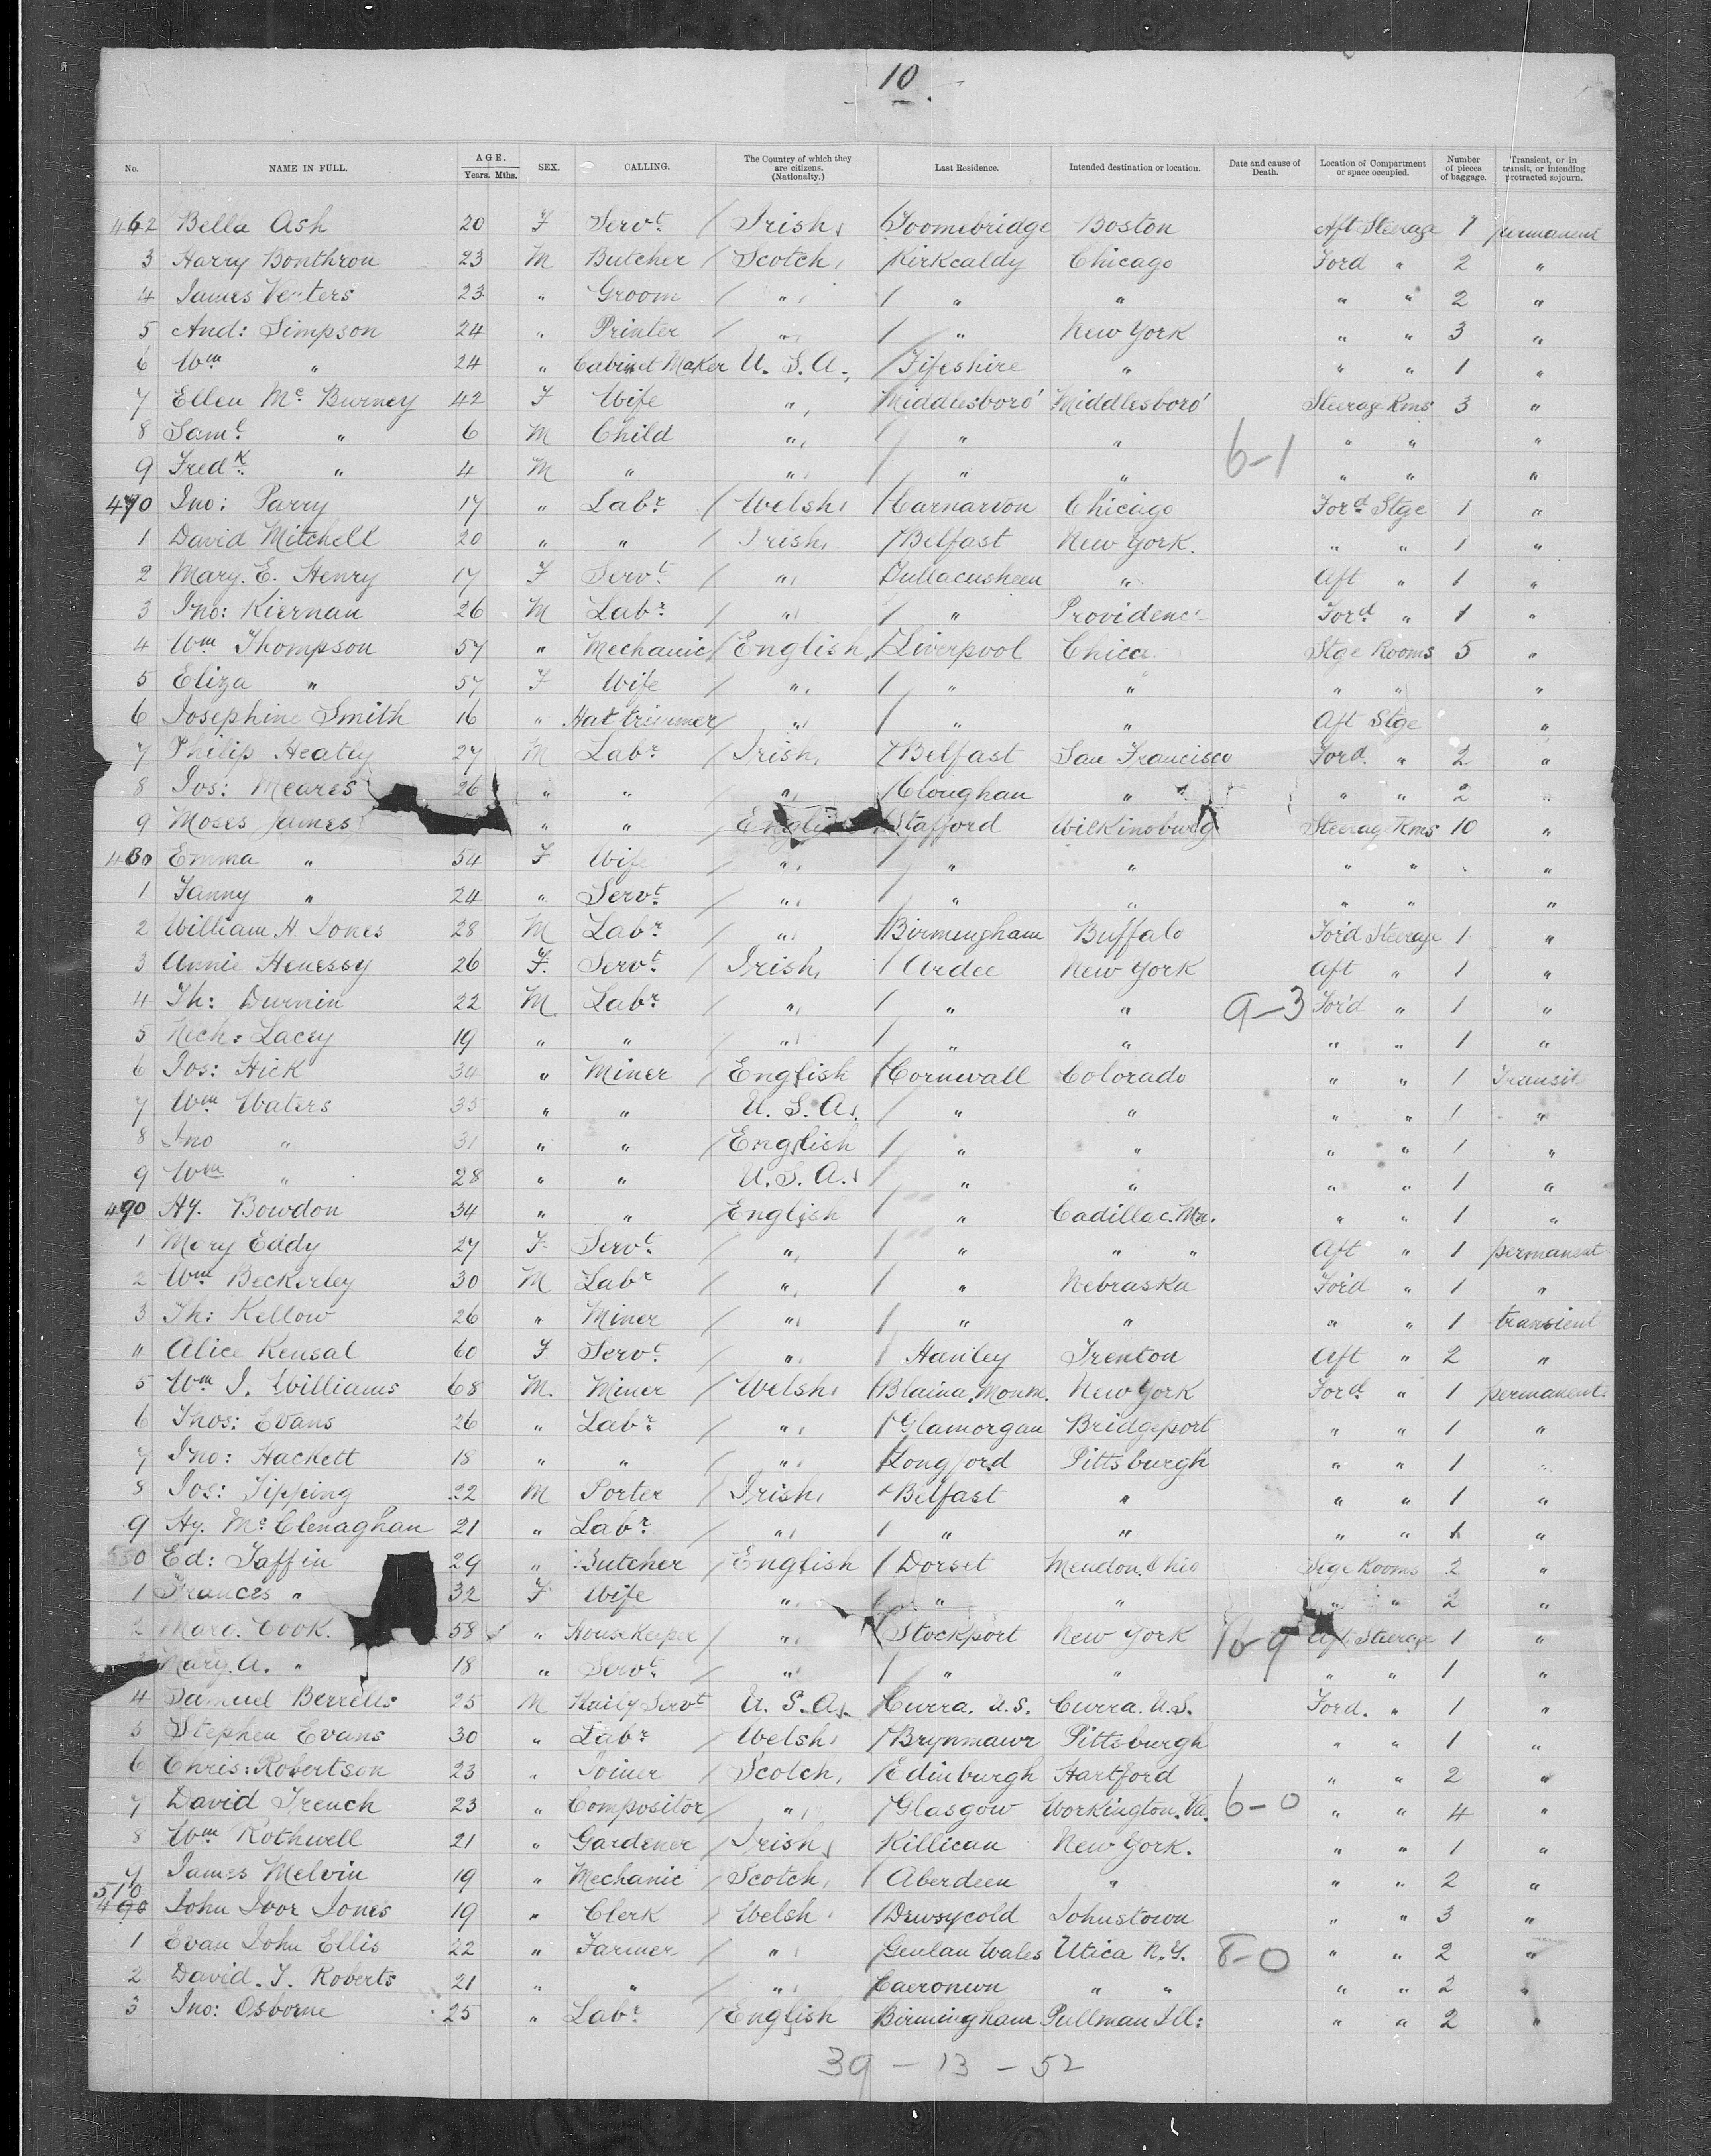 10.
No. NAME IN FULL. AGE. Years. Mths. SEX. CALLING. The Country of which they are citizens. (Nationalty.) Last Residence. Intended destination or location. Date and cause of Death. Location of Compartment or space occupied. Number of pieces of baggage. Transient, or in transit, or intending protracted sojourn.
462 Bella Ash 20 F Servt / Irish, / Toomebridge Boston Aft Steerage 1 permanent
3 Harry Bonthron 23 M Butcher / Scotch, / Kirkcaldy Chicago Ford " 2 "
4 James Venters 23 " Groom / " / " " " " 2 "
5 And: Simpson 24 " Printer / " / " New York " " 3 "
6 Wm " 24 " Cabinet Maker U. S. A., / Fifeshire " " " 1 "
7 Ellen Mc Burney 42 F Wife " Middlesboro' Middlesboro' Steerage Rms 3 "
8 Saml " 6 M Child " / " " " " "
9 Fredk " 4 M " " / " " 6-1 " " "
470 Jno: Parry 17 " Labr / Welsh, / Carnarvon Chicago Ford Stge 1 "
1 David Mitchell 20 " " / Irish, / Belfast New York. " " 1 "
2 Mary. E. Henry 17 F Servt / " Tullacusheen " Aft " 1 "
3 Jno: Kiernan 26 M Labr / " / " Providenc Ford " 1 "
4 Wm Thompson 57 " Mechanic / English, / Liverpool Chica Stge Rooms 5 "
5 Eliza " 57 F Wife / " / " " " " "
6 Josephine Smith 16 " Hat trimmer / " / " " Aft Stge "
7 Philip Heatly 27 M Labr / Irish, / Belfast San Francisco Ford. " 2 "
8 Jos: Meares 26 " " / " / Cloughan " " " " 2 "
9 Moses James " " / Englis / Stafford Wilkinsburg Steerage Rms 10 "
480 Emma " 54 F Wife / " / " " " " "
1 Fanny " 24 " Servt / " / " " " " "
2 William H. Jones 28 M Labr / " / Birmingham Buffalo Ford Steerage 1 "
3 Annie Henessy 26 F. Servt / Irish, / Ardee New York Aft " 1 "
4 Th: Durnin 22 M. Labr / " / " " 9-3 Ford " 1 "
5 Nich: Lacey 19 " " / " / " " " " 1 "
6 Jos: Hick 34 " Miner / English / Cornwall Colorado " " 1 Transit
7 Wm Waters 35 " " U. S. A. / " " " " 1 "
8 Jno " 31 " " / English / " " " " 1 "
9 Wm " 28 " " U. S. A. / " " " " 1 "
490 Hy. Bowdon 34 " " / English / " Cadillac. Mn. " " 1 "
1 Mary Eddy 27 F Servt / " / " " " Aft " 1 permanent
2 Wm Beckerley 30 M Labr / " / " Nebraska Ford " 1 "
3 Th: Kellow 26 " Miner / " / " " " " 1 transient
4 Alice Kensal 60 F Servt / " / Hanley Trenton Aft " 2 "
5 Wm J. Williams 68 M. Miner / Welsh, / Blaina, Monm. New York Ford " 1 permanent.
6 Thos: Evans 26 " Labr / " / Glamorgan Bridgeport " " 1 "
7 Jno: Hackett 18 " " / " / Longford Pittsburgh " " 1 "
8 Jos: Tipping 22 M Porter / Irish, / Belfast " " " 1 "
9 Hy. Mc Clenaghan 21 " Labr / " / " " " " 1 "
500 Ed: Taffin 29 " Butcher / English / Dorset Mendon. Ohio Stge Rooms 2 "
1 Frances " 32 F Wife / " / " " " " 2 "
2 Marg. Cook. 58 " HouseKeeper / " / Stockport New York 10-9 Aft Steerage 1 "
Mary. A. " 18 " Servt / " / " " " " 1 "
4 Samuel Berrells 25 M Servt U. S. A. / Curra. U.S. Curra. U.S. Ford. " 1 "
5 Stephen Evans 30 " Labr / Welsh, / Brynmawr Pittsburgh " " 1 "
6 Chris: Robertson 23 " Joiner / Scotch, / Edinburgh Hartford " " 2 "
7 David French 23 " Compositor / " / Glasgow Workington. Va. 6-0 " " 4 "
8 Wm Rothwell 21 " Gardener / Irish, Killican New York. " " 1 "
9 James Melvin 19 " Mechanic / Scotch, / Aberdeen " " " 2 "
510 490 John Ivor Jones 19 " Clerk / Welsh / Johnstown " " 3 "
1 Evan John Ellis 22 " Farmer / " / Wales Utica N.Y. 8-0 " " 2 "
2 David. J. Roberts 21 " " / " / " " " " 2 "
3 Jno: Osborne 25 " Labr / English Birmingham Pullman Ill: " " 2 "
39 - 13 - 52